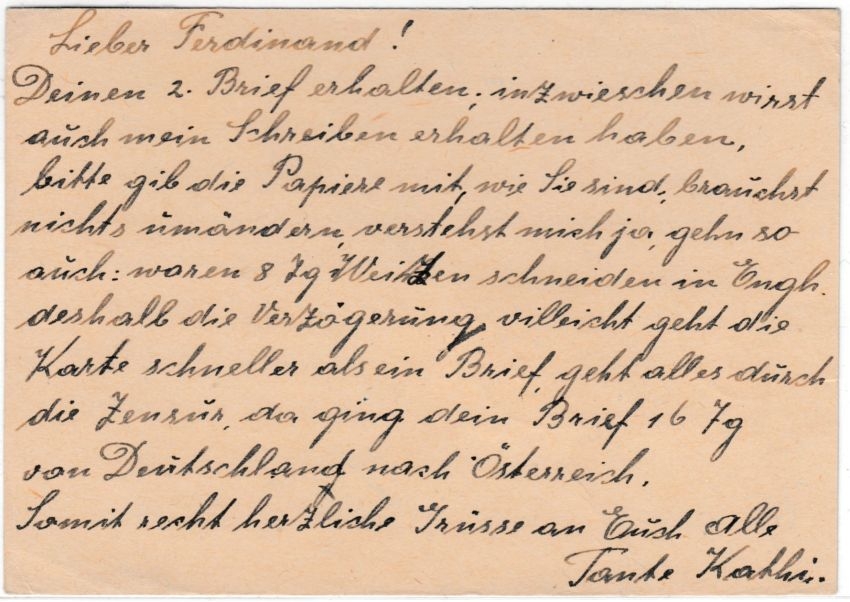 Lieber Ferdinand!
Deinen 2. Brief erhalten, inzwieschen wirst
auch mein Schreiben erhalten haben,
bitte gib die Papiere mit, wie Sie sind, brauchst
nichts umändern, verstehst mich ja, gehn so
auch: waren 8 Tg Weitzen schneiden in Engh.
deshalb die Verzögerung, villeicht geht die
Karte schneller als ein Brief, geht alles durch
die Zensur, da ging dein Brief 16 Tg
von Deutschland nach Österreich.
Somit recht herzliche Grüsse an Euch alle
Tante Kathi.